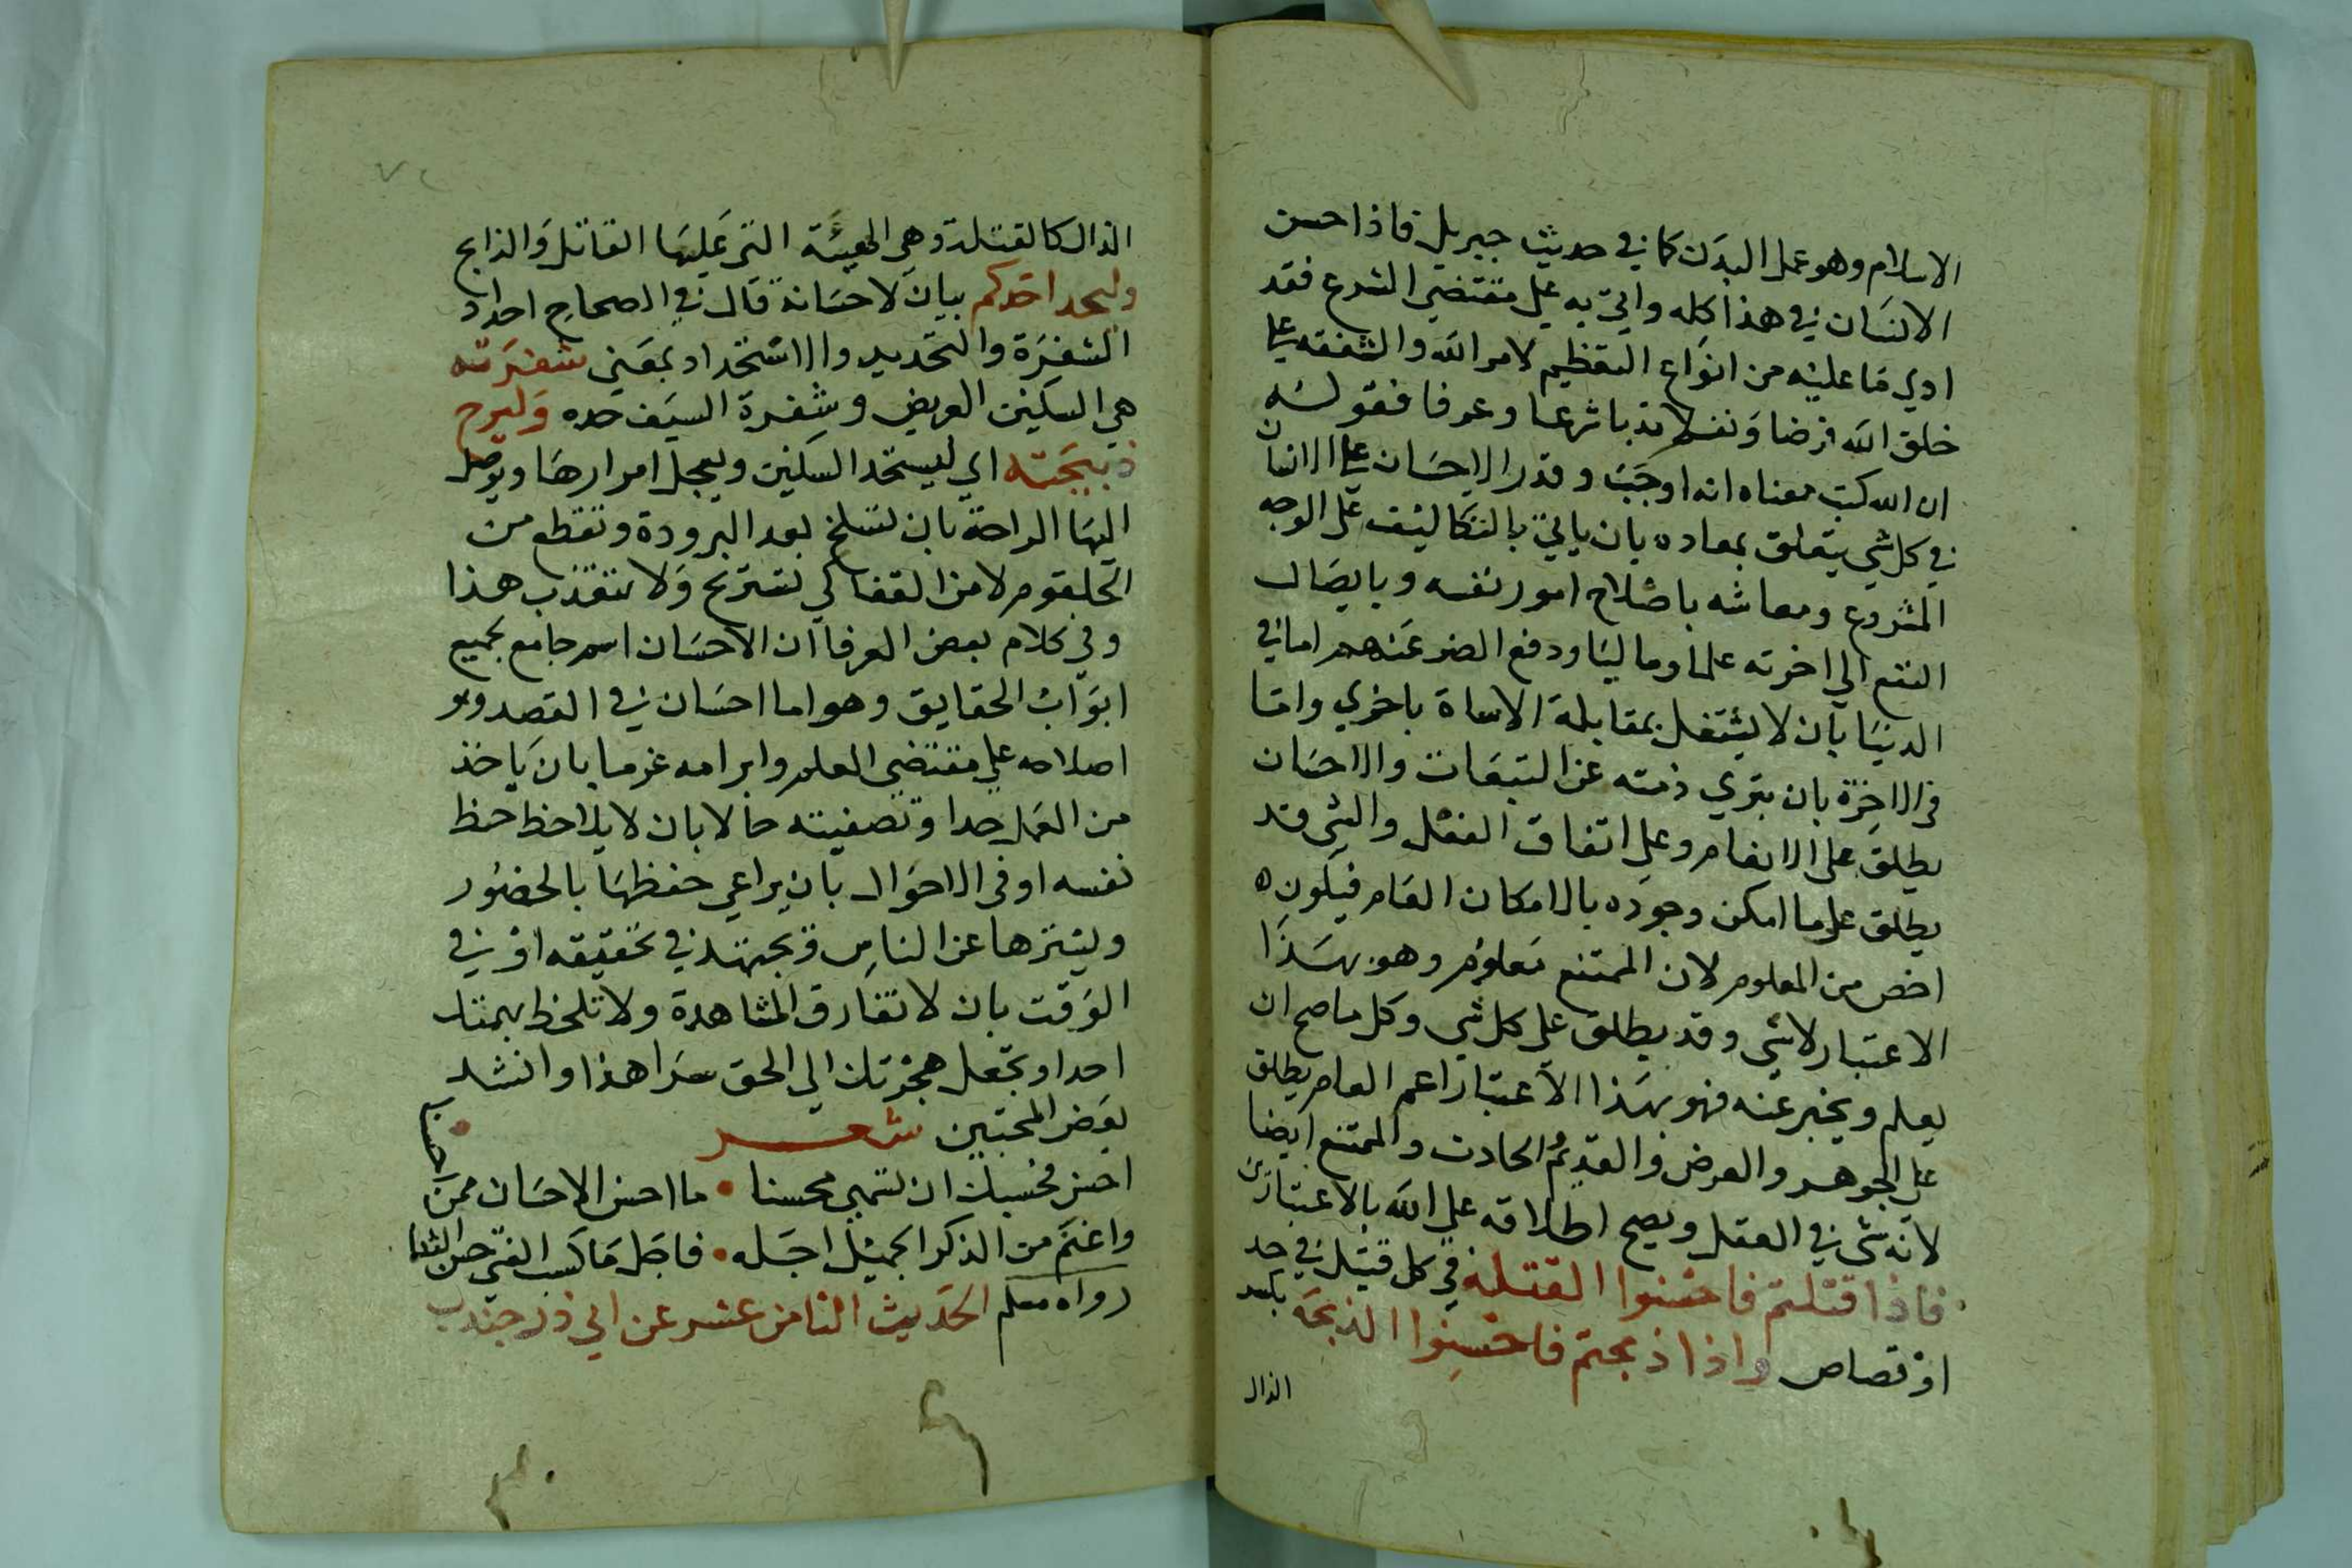 الاسلام وهو عمل البدن كما في حديث جبريل فاذا احسن
الانسان في هذا كله واتي به علي مقتضي الشرع فقد
ادي ما عليه من انواع التعظيم لامر الله والشفقه علي
خلق الله فرضا ونفلا ندبا شرعا وعرفا فقوله
ان الله كتب معناه انه اوجب وقدر الاحسان علي الانسان
في كل شي يتعلق بمعاده بان ياتي بالتكاليف علي الوجه
المشروع ومعاشه باصلاح امور نفسه وبايصال
النفع الي اخوته علما وماليا ودفع الضر عنهم اما في
الدنيا بان لا يشتغل بمقابلة الاساة باخري واما
في الاخرة بان يبري ذمته عن التبعات والاحسان
يطلق علي الانعام وعلي اتفاق الفعل والشي قد
يطلق علي ما امكن وجوده بالامكان العام فيكون
اخص من المعلوم لان الممتنع معلوم وهو بهذا
الاعتبار لا شي وقد يطلق علي كل شي وكل ما صح ان
يعلم ويخبر عنه فهو بهذا الاعتبار اعم العام يطلق
علي الجوهر والعرض والقديم الحادث والممتنع ايضا
لانه شي في العقل ويصح اطلاقه علي الله بالاعتبارين
فاذا قتلتم فاحسنوا القتلة في كل قتيل في حد
او قصاص واذا ذبحتم فاحسنوا الذبحة بكسر
الذال
الذال كالقتلة وهي الهيئة التي عليها القاتل والذابح
وليحد احدكم بيان لاحسانه قال في الصحاح احداد
الشفرة والتحديد والاستحداد بمعني شفرته
هي السكين العريض وشفرة السيف حده وليرح
ذبيحته اي ليستحد السكين وليعجل امرارها ويوصل
اليها الراحة بان لتسلخ بعد البرودة وتقطع من
الحلقوم لا من القفا كي تستريح ولا تتعذب هذا
وفي كلام بعض العرفا ان الاحسان اسم جامع لجميع
ابواب الحقايق وهو اما احسان في القصد وهو
اصلاحه علي مقتضي العلم وابرامه عزما بان ياخذ
من العمل جدا وتصفيته حالا بان لا يلاحظ حظ
نفسه او في الاحوال بان يراعي حفظها بالحضور
ويسترها عن الناس ويجتهد في تحقيقه او في
الوقت بان لا تفارق المشاهدة ولا تلحظ بهمتك
احدا وتجعل هجرتك الي الحق سرا هذا وانشد
بعض المحبين شعر
احسن فحسبك ان تسمي محسنا • ما احسن الاحسان ممن احسنا
واغنم من الذكر الجميل اجله • فاجل ما كسب الفتي حسن الثنا
رواه مسلم الحديث الثامن عشر عن ابي ذر جندب